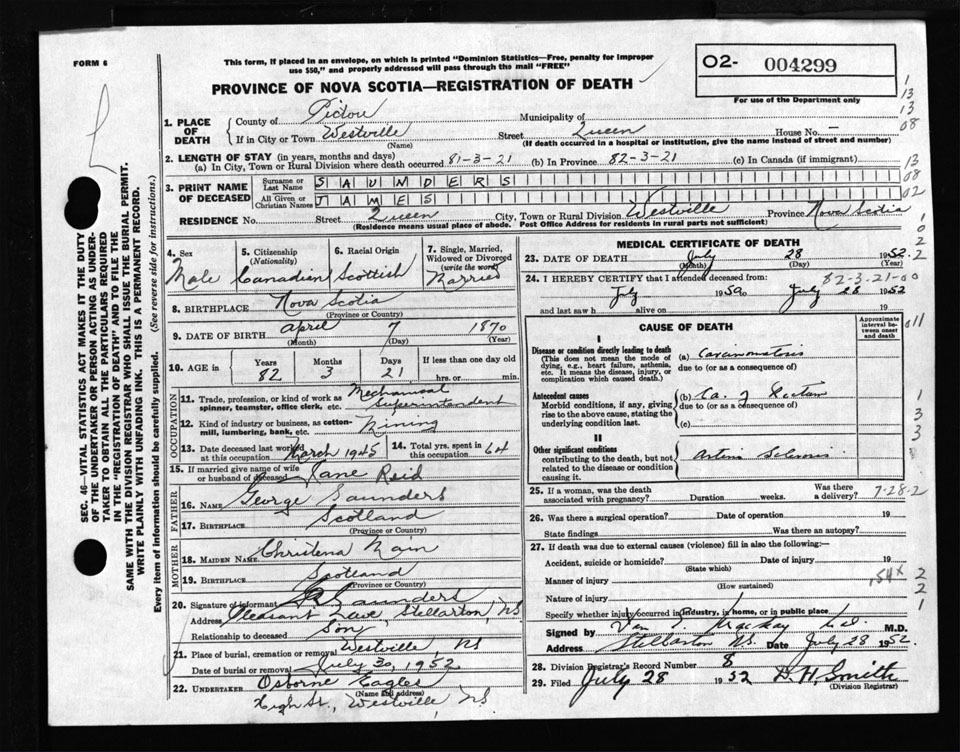 FORM 6
This form, if placed in an envelope, on which is printed "Dominion Statistics—Free, penalty for improper
use $50," and properly addressed will pass through the mail "FREE"
PROVINCE OF NOVA SCOTIA—REGISTRATION OF DEATH
O2- 004299
For use of the Department only
1. PLACE OF DEATH
County of Pictou Municipality of
If in City or Town Westville Street Queen House No. —
(Name) (If death occurred in a hospital or institution, give the name instead of street and number)
2. LENGTH OF STAY (in years, months and days)
(a) In City, Town or Rural Division where death occurred 81-3-21 (b) In Province 82-3-21 (c) In Canada (if immigrant)
3. PRINT NAME OF DECEASED
Surname or Last Name SAUNDERS
All Given or Christian Names JAMES
RESIDENCE No. Street Queen City, Town or Rural Division Westville Province Nova Scotia
(Residence means usual place of abode. Post Office Address for residents in rural parts not sufficient)
4. Sex Male
5. Citizenship (Nationality) Canadian
6. Racial Origin Scottish
7. Single, Married, Widowed or Divorced (write the word) Married
8. BIRTHPLACE Nova Scotia
(Province or Country)
9. DATE OF BIRTH April 7 1870
(Month) (Day) (Year)
10. AGE in Years 82 Months 3 Days 21 If less than one day old
hrs. or min.
OCCUPATION
11. Trade, profession, or kind of work as spinner, teamster, office clerk, etc. Mechanical Superintendent
12. Kind of industry or business, as cotton-mill, lumbering, bank, etc. Mining
13. Date deceased last worked at this occupation March 1945
14. Total yrs. spent in this occupation 64
15. If married give name of wife or husband of deceased Jane Reid
FATHER
16. NAME George Saunders
17. BIRTHPLACE Scotland
(Province or Country)
MOTHER
18. MAIDEN NAME Christena Nain
19. BIRTHPLACE Scotland
(Province or Country)
20. Signature of informant Saunders
Address Pleasant Stellarton, NS
Relationship to deceased Son
21. Place of burial, cremation or removal Westville, NS
Date of burial or removal July 30, 1952
22. UNDERTAKER Osborne Eagles
(Name and address)
High St., Westville, NS
MEDICAL CERTIFICATE OF DEATH
23. DATE OF DEATH July 28 1952
(Month) (Day) (Year)
24. I HEREBY CERTIFY that I attended deceased from:
82-3-21-00
July 1950 July 28 1952
and last saw h alive on 19
CAUSE OF DEATH
Approximate interval between onset and death
I
Disease or condition directly leading to death (a) Carcinomatosis
(This does not mean the mode of dying, e.g., heart failure, asthenia, etc. It means the disease, injury, or complication which caused death.)
due to (or as a consequence of)
Antecedent causes (b) Ca. of Rectum
Morbid conditions, if any, giving rise to the above cause, stating the underlying condition last.
due to (or as a consequence of)
(c)
II
Other significant conditions
contributing to the death, but not related to the disease or condition causing it.
Arterio Sclerosis
25. If a woman, was the death associated with pregnancy? Duration weeks. Was there a delivery?
7-28-2
26. Was there a surgical operation? Date of operation 19
State findings Was there an autopsy?
27. If death was due to external causes (violence) fill in also the following:—
Accident, suicide or homicide? Date of injury 19
(State which)
Manner of injury
154X
(How sustained)
Nature of injury
Specify whether injury occurred in industry, in home, or in public place
Signed by MacKay M.D.
Address Stellarton N.S. Date July 28 1952
28. Division Registrar's Record Number 8
29. Filed July 28 1952 D. H. Smith
(Division Registrar)
SEC. 46—VITAL STATISTICS ACT MAKES IT THE DUTY
OF THE UNDERTAKER OR PERSON ACTING AS UNDER-
TAKER TO OBTAIN ALL THE PARTICULARS REQUIRED
IN THE "REGISTRATION OF DEATH" AND TO FILE THE
SAME WITH THE DIVISION REGISTRAR WHO SHALL ISSUE THE BURIAL PERMIT.
WRITE PLAINLY WITH UNFADING INK. THIS IS A PERMANENT RECORD.
Every item of Information should be carefully supplied. (See reverse side for instructions.)